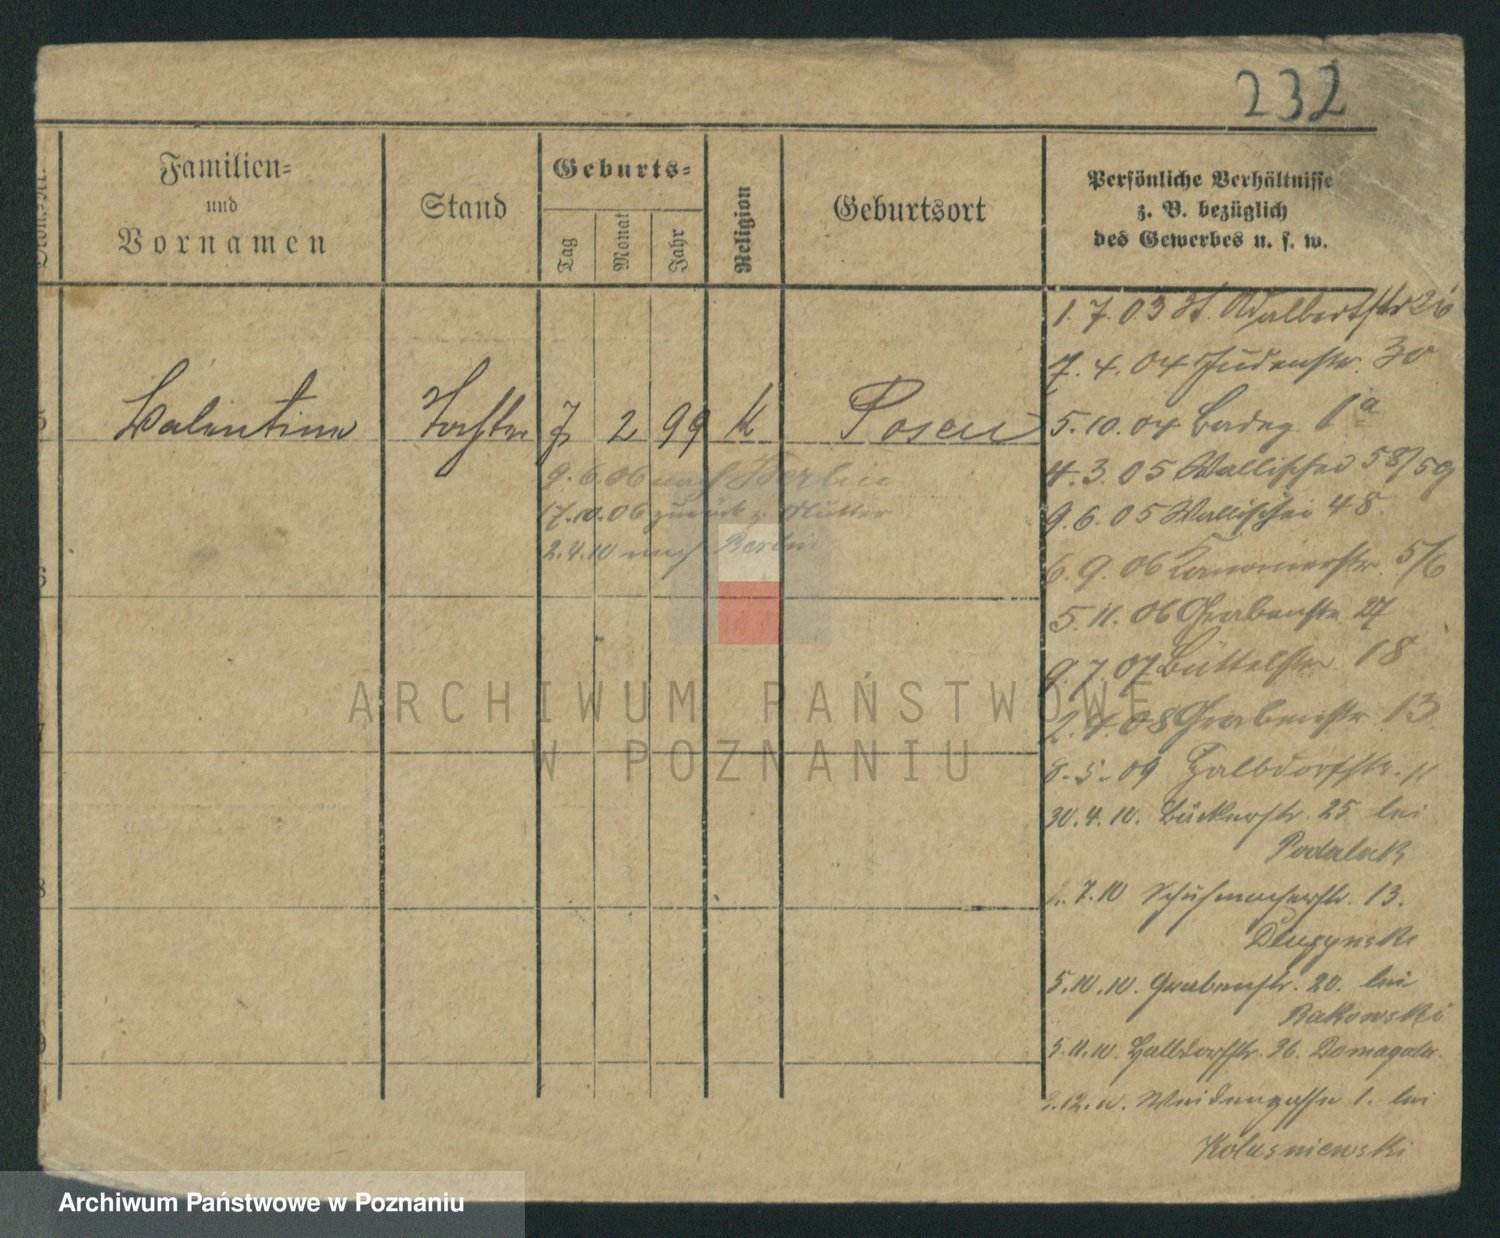 232
Familien=
und
Vornamen
Stand
Geburts=
Tag
Monat
Jahr
Religion
Geburtsort
Persönliche Verhältnisse
z. B. bezüglich
des Gewerbes u. s. w.
Valentine Tochter 7 2 99 K Posen
9.6.06 nach Berlin
17.10.06 zurück z. Mutter
2.4.10 nach Berlin
1.7.03 St. Adalbertstr 26
7.4.04 Judenstr. 30
5.10.04 1a
4.3.05 Wallischei 58/59
9.6.05 Wallischei 48
6.9.06 Kanonierstr. 5/6
5.11.06 Grabenstr. 27
9.7.07 Büttelstr. 18
2.4.08 Grabenstr. 13.
8.5.09 Halbdorfstr. 11
30.4.10. Bäckerstr. 25 bei
Podalak
7.10 Schuhmacherstr. 13.
5.10.10. Grabenstr. 20. bei
Rakowski
5.11.10. Halbdorfstr. 36. Domagala
12.10. Weidengasse 1. bei
Kolasniewski
5
6
7
8
9
ARCHIWUM PAŃSTWOWE
W POZNANIU
Archiwum Państwowe w Poznaniu